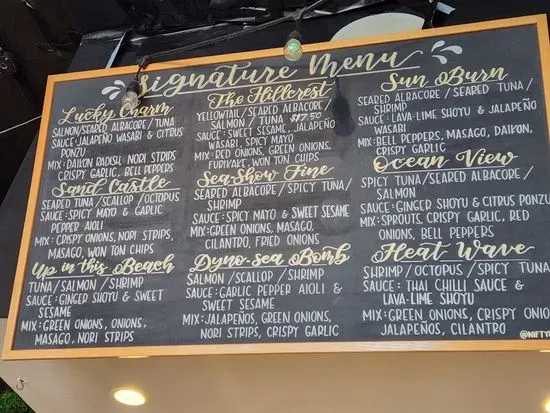 Signature Menu
Lucky Charm
SALMON/SEARED ALBACORE/TUNA
SAUCE: JALAPEÑO WASABI & CITRUS
PONZU
MIX: DAIKON RADISH, NORI STRIPS
CRISPY GARLIC, BELL PEPPERS
Sand Castle
SEARED TUNA/SCALLOP/OCTOPUS
SAUCE: SPICY MAYO & GARLIC
PEPPER AIOLI
MIX: CRISPY ONIONS, NORI STRIPS,
MASAGO, WON TON CHIPS
Up in this Beach
TUNA/SALMON/SHRIMP
SAUCE: GINGER SHOYU & SWEET
SESAME
MIX: GREEN ONIONS, ONIONS,
MASAGO, NORI STRIPS
The Hillcrest
YELLOWTAIL/SEARED ALBACORE/
SALMON/TUNA $17.50
SAUCE: SWEET SESAME, JALAPEÑO
WASABI, SPICY MAYO
MIX: RED ONIONS, GREEN ONIONS,
FURIKAKE, WON TON CHIPS
Sea-Show Fine
SEARED ALBACORE/SPICY TUNA/
SHRIMP
SAUCE: SPICY MAYO & SWEET SESAME
MIX: GREEN ONIONS, MASAGO,
CILANTRO, FRIED ONIONS
Dyno-sea Bomb
SALMON/SCALLOP/SHRIMP
SAUCE: GARLIC PEPPER AIOLI &
SWEET SESAME
MIX: JALAPEÑOS, GREEN ONIONS,
NORI STRIPS, CRISPY GARLIC
Sun Burn
SEARED ALBACORE/SEARED TUNA/
SHRIMP
SAUCE: LAVA-LIME SHOYU & JALAPEÑO
WASABI
MIX: BELL PEPPERS, MASAGO, DAIKON,
CRISPY GARLIC
Ocean View
SPICY TUNA/SEARED ALBACORE/
SALMON
SAUCE: GINGER SHOYU & CITRUS PONZU
MIX: SPROUTS, CRISPY GARLIC, RED
ONIONS, BELL PEPPERS
Heat Wave
SHRIMP/OCTOPUS/SPICY TUNA
SAUCE: THAI CHILLI SAUCE &
LAVA-LIME SHOYU
MIX: GREEN ONIONS, CRISPY ONION
JALAPEÑOS, CILANTRO